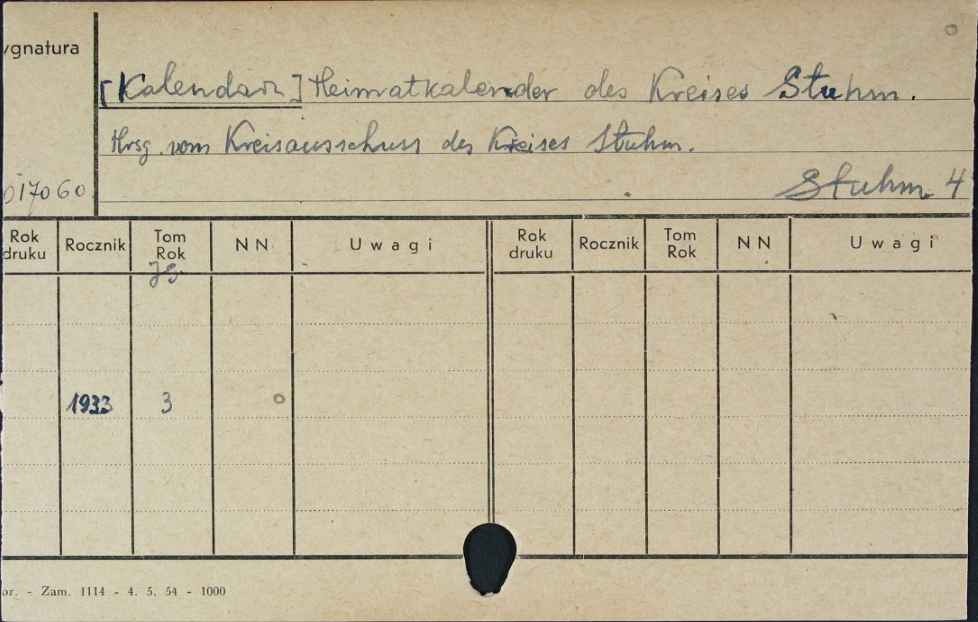 ygnatura
[Kalendarz] Heimatkalender des Kreises Stuhm.
Hrsg. vom Kreisausschuss des Kreises Stuhm.
017060
Stuhm 4
Rok druku Rocznik Tom Rok NN Uwagi Rok druku Rocznik Tom Rok NN Uwagi
Jg.
1933 3 o
or. - Zam. 1114 - 4. 5. 54 - 1000